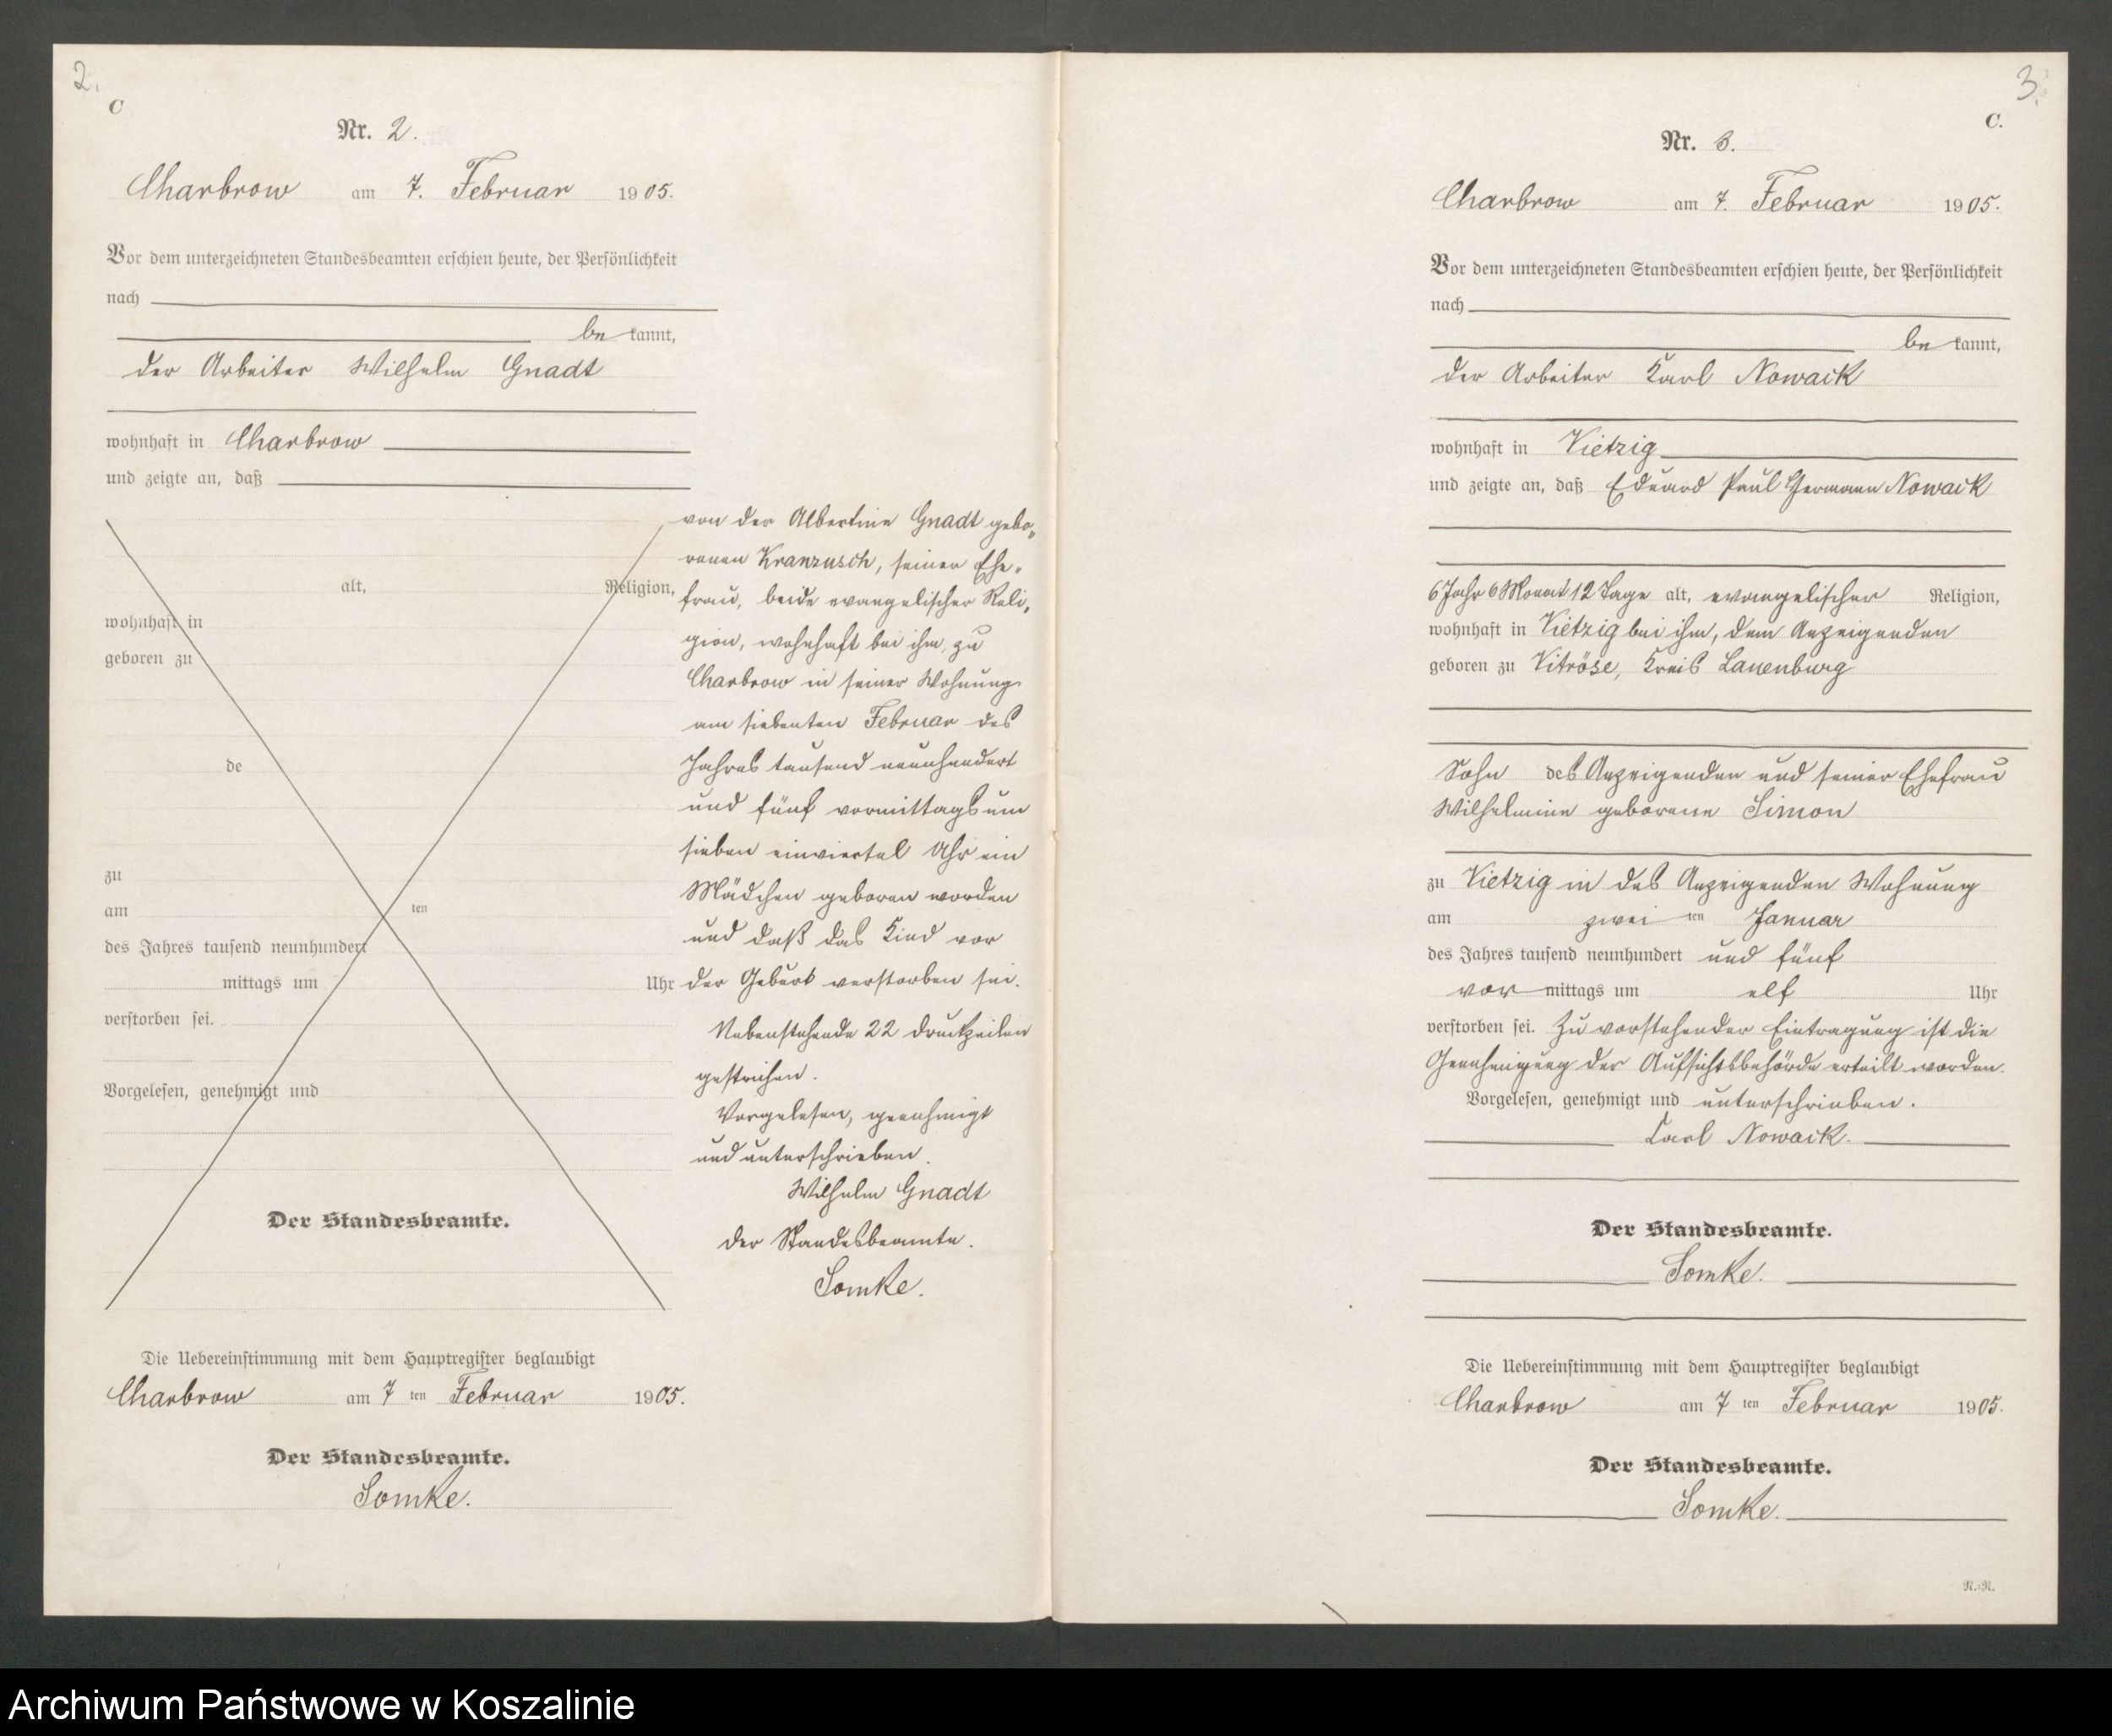 2.
C
Nr. 2.
Charbrow am 7. Februar 1905.
Vor dem unterzeichneten Standesbeamten erschien heute, der Persönlichkeit
nach
be kannt,
der Arbeiter Wilhelm Gnadt
wohnhaft in Charbrow
und zeigte an, daß
von der Albertine Gnadt gebo„
renen Kranzusch, seiner Ehe„
alt, Religion,
frau, beide evangelischer Reli„
wohnhaft in
gion, wohnhaft bei ihm, zu
geboren zu
Charbrow in seiner Wohnung
am siebenten Februar des
de
Jahres tausend neunhundert
und fünf vormittags um
sieben einviertel Uhr ein
zu
Mädchen geboren worden
am ten
und daß das Kind vor
des Jahres tausend neunhundert
mittags um Uhr
der Geburt verstorben sei.
verstorben sei.
Nebenstehende 22 Druckzeilen
gestrichen.
Vorgelesen, genehmigt und
Vorgelesen, genehmigt
und unterschrieben.
Wilhelm Gnadt
Der Standesbeamte.
Der Standesbeamte.
Somke.
Die Uebereinstimmung mit dem Hauptregister beglaubigt
Charbrow am 7 ten Februar 1905.
Der Standesbeamte.
Somke.
3.
C.
Nr. 3.
Charbrow am 7. Februar 1905.
Vor dem unterzeichneten Standesbeamten erschien heute, der Persönlichkeit
nach
be kannt,
der Arbeiter Karl Nowack
wohnhaft in Vietzig
und zeigte an, daß Eduard Paul Hermann Nowack
6 Jahr 6 Monat 12 Tage alt, evangelischer Religion,
wohnhaft in Vietzig bei ihm, dem Anzeigenden
geboren zu Vitröse, Kreis Lauenburg
Sohn des Anzeigenden und seiner Ehefrau
Wilhelmine geborene Simon
zu Vietzig in des Anzeigenden Wohnung
am zwei ten Januar
des Jahres tausend neunhundert und fünf
vor mittags um elf Uhr
verstorben sei. Zu vorstehender Eintragung ist die
Genehmigung der Aufsichtsbehörde erteilt worden.
Vorgelesen, genehmigt und unterschrieben.
Carl Nowack.
Der Standesbeamte.
Somke.
Die Uebereinstimmung mit dem Hauptregister beglaubigt
Charbrow am 7 ten Februar 1905.
Der Standesbeamte.
Somke.
N.-N.
Archiwum Państwowe w Koszalinie